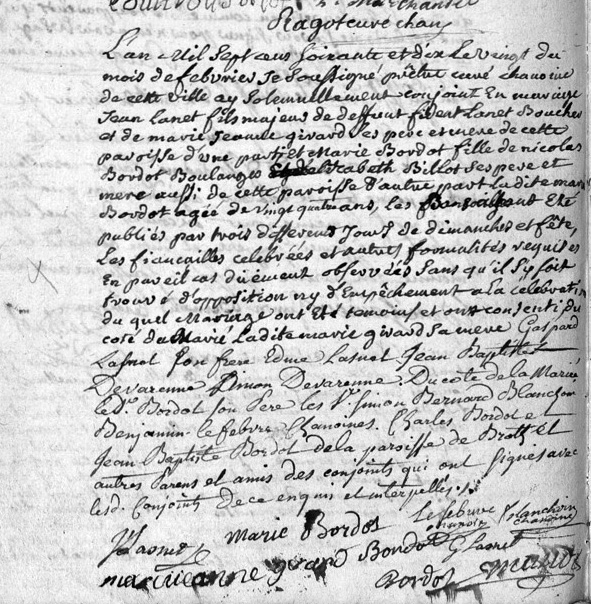 Ragot curé chan
L'an Mil Sept cens soixante et dix le vingt du
mois de febvrier Je Soussigné prêtre curé chanoine
de cette ville ay Solemnellement conjoint En mariage
Jean Lanet fils majeur de deffunt Lanet Boucher
et de marie jeanne girard Ses pere et mere de cette
paroisse d'une part, et Marie Bordot fille de nicolas
Bordot Boulanger Elizabeth Billot Ses pere et
mere aussi de cette paroisse d'autre part, Ladite marie
Bordot agée de vingt quatre ans, les Bans ont Eté
publiés par trois differens Jours de dimanches et fête,
Les fiancailles celebréés et autres formalités requises
En pareil cas duement observéés Sans qu'il S'y soit
trouvé d'opposition ny d'Empêchement a la celebration
du quel Mariage ont Eté temoins et ont consenti, du
coté du Marié Ladite marie girard Sa mere Gaspard
Lasnet Son frere Edme Lasnet Jean Baptiste
Devarenne Simon Devarenne. Du coté de la Mariée
le Sr. Bordot son Pere les Srs. Simon Bernard Blanchon
Benjamin lefebvre Chanoines. Charles Bordot et
Jean Baptiste Bordot de la paroisse de Brotte et
autres Parens et amis des conjoints qui ont signés avec
lesd. Conjoints de ce enquis et interpellés.
Lefebvre Blanchon
chanoine
Marie Bordot
J Lasnet
marie jeanne girard Bordot G Lasnet
Bordot